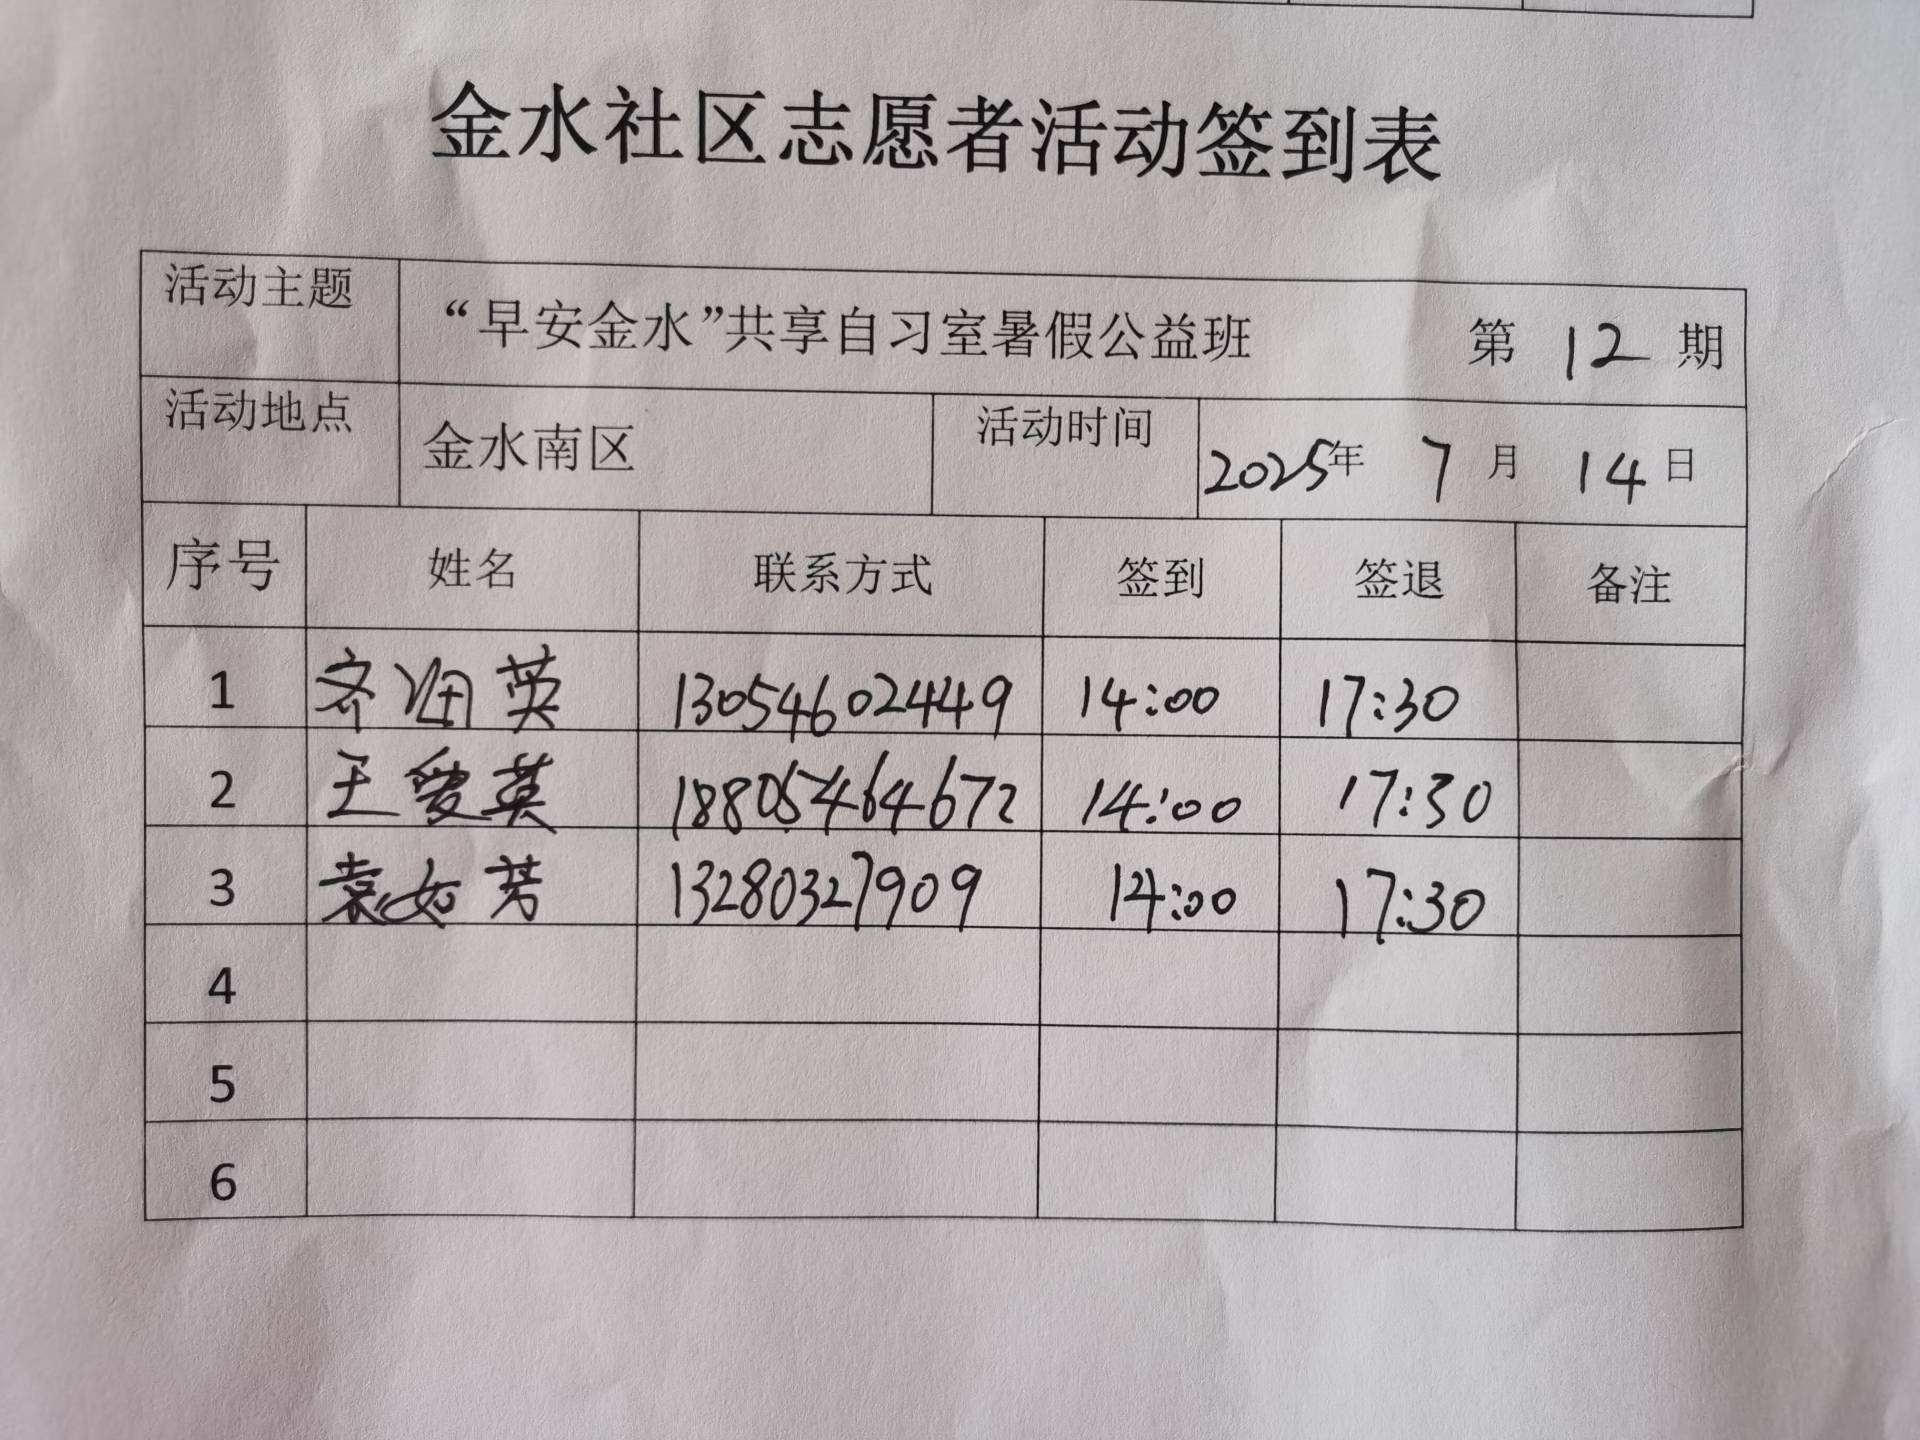 金水社区志愿者活动签到表
活动主题 “早安金水”共享自习室暑假公益班 第 12 期
活动地点 金水南区 活动时间 2025年 7 月 14 日
序号 姓名 联系方式 签到 签退 备注
1 齐润英 13054602449 14:00 17:30
2 王爱英 18805464672 14:00 17:30
3 袁如芳 13280327909 14:00 17:30
4
5
6